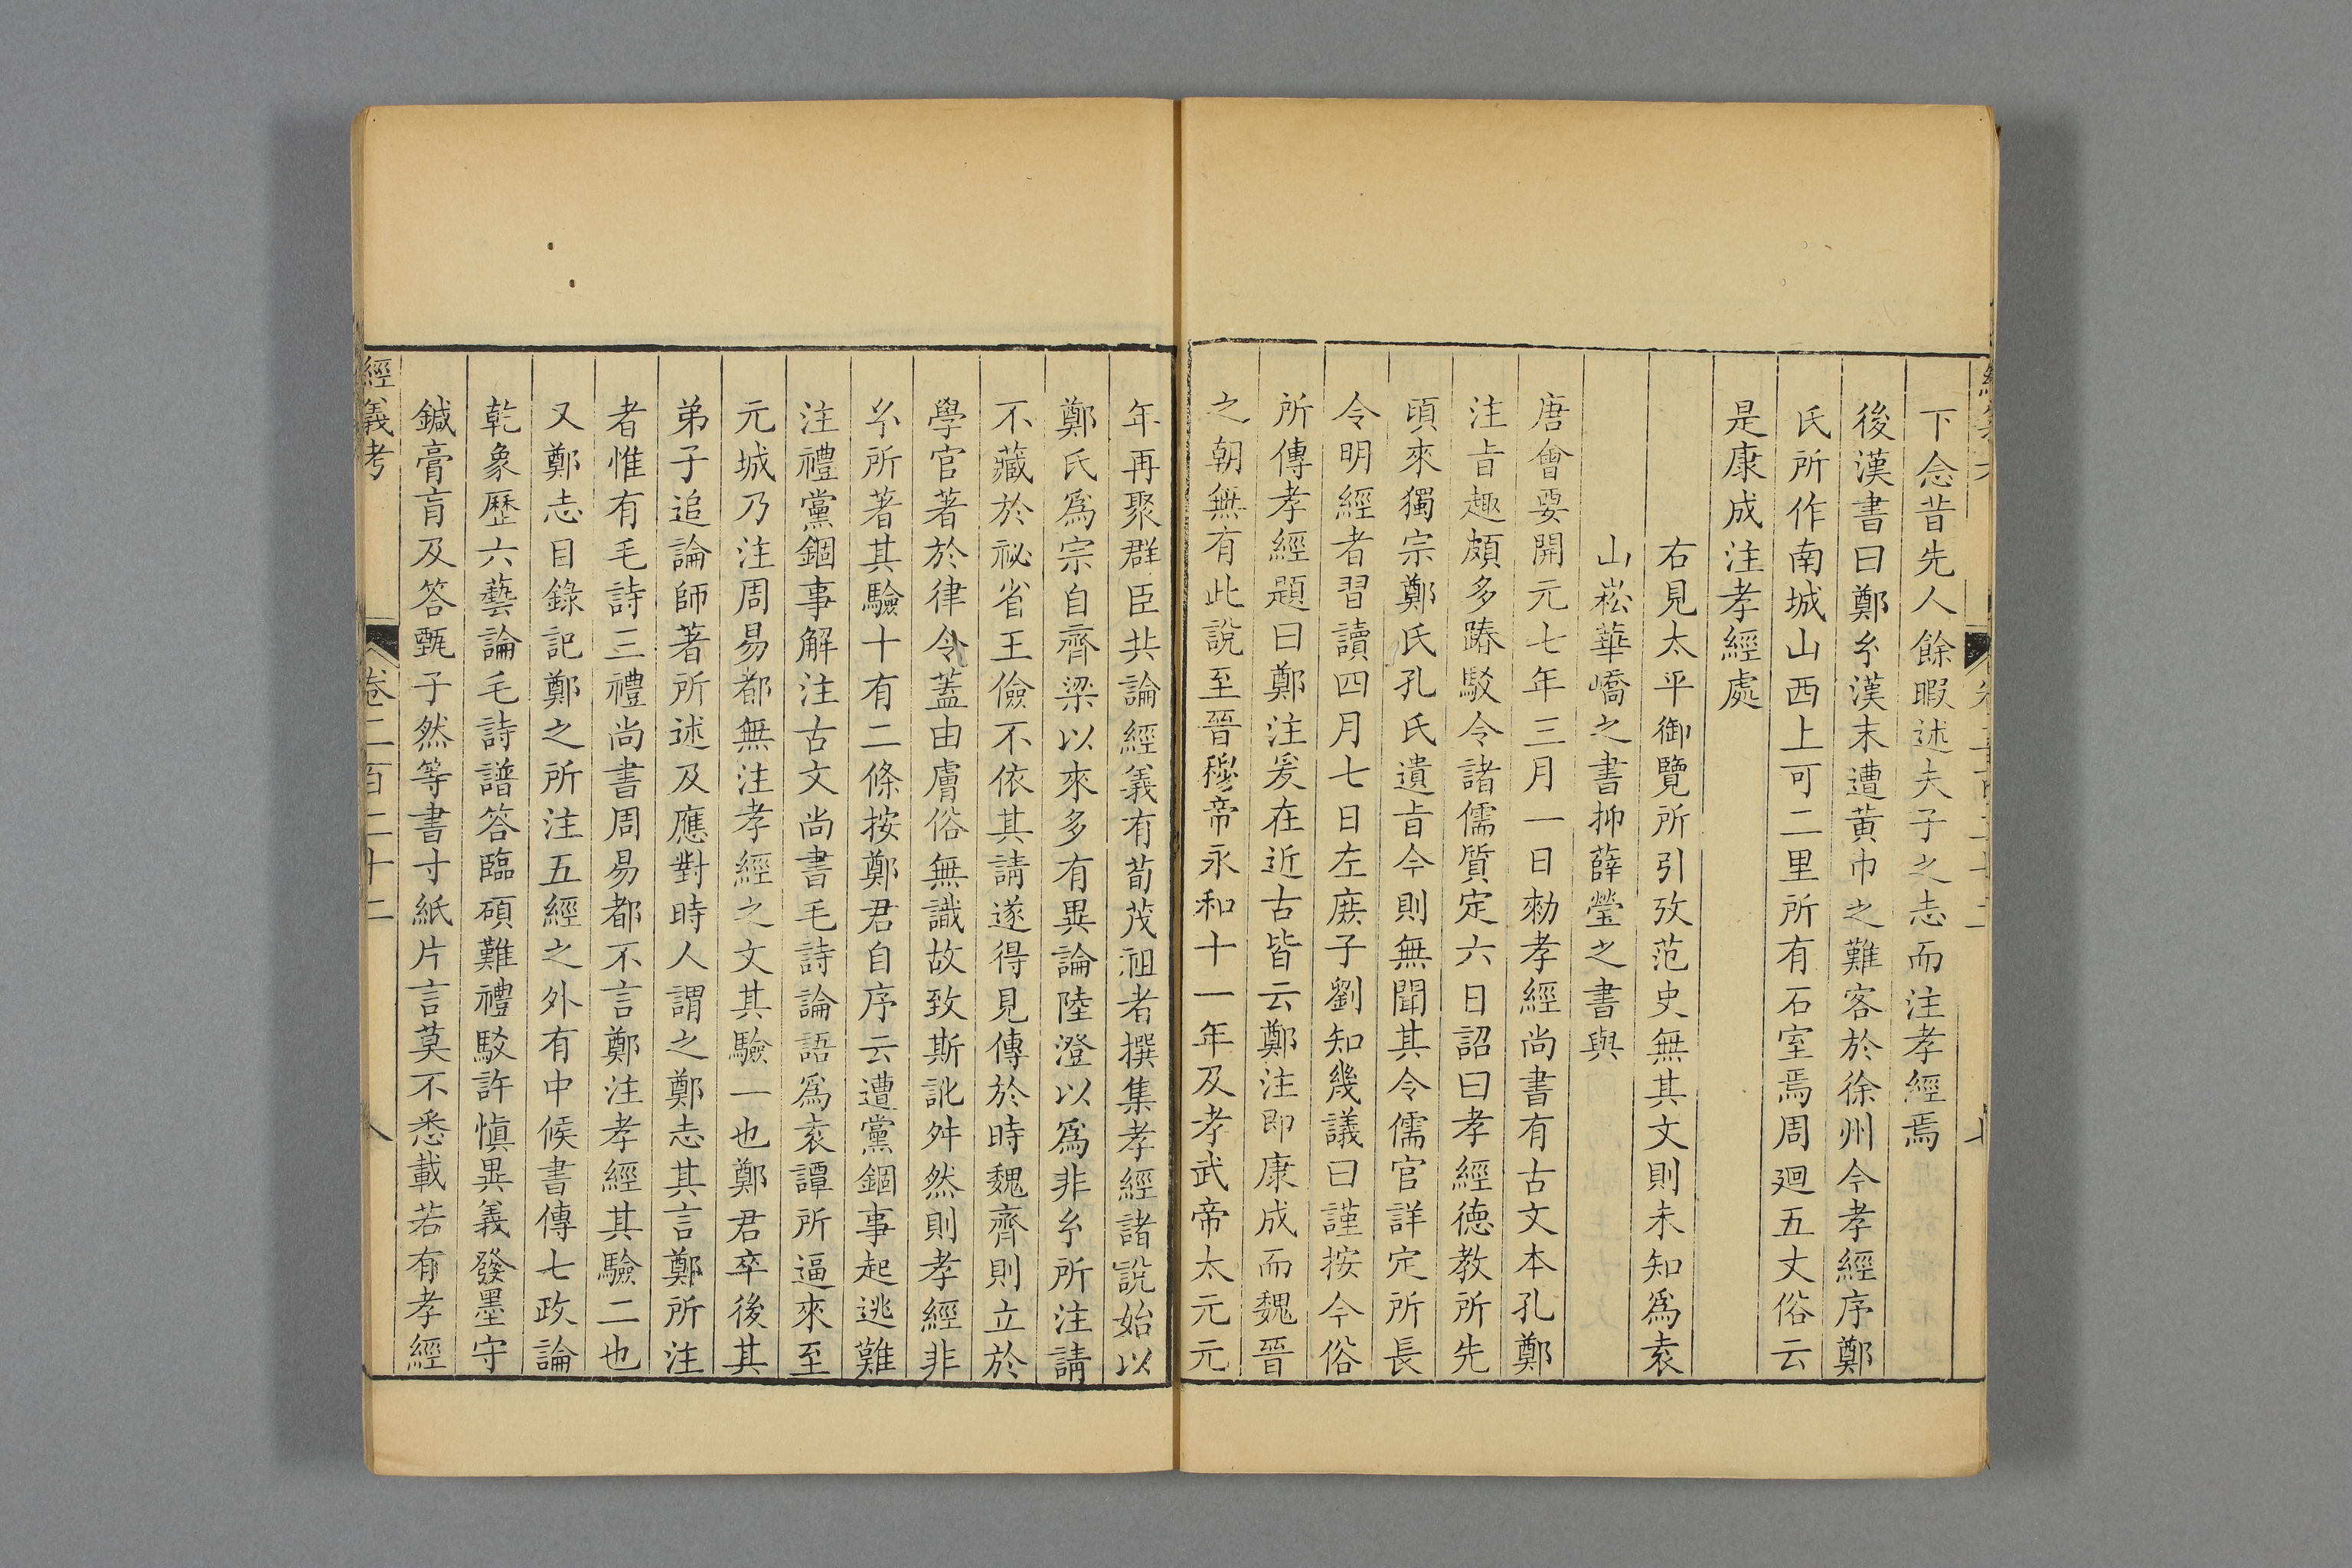 下念昔先人餘暇述夫子之志而注孝經焉
後漢書曰鄭𤣥漢末遭黃巾之難客於徐州今孝經序鄭
氏所作南城山西上可二里所有石室焉周迴五丈俗云
是康成注孝經處
右見太平御覽所引攷范史無其文則未知爲袁
山崧華嶠之書抑薛瑩之書與
唐會要開元七年三月一日勑孝經尚書有古文本孔鄭
注旨趣頗多踳駁令諸儒質定六日詔曰孝經德教所先
頃來獨宗鄭氏孔氏遺旨今則無聞其令儒官詳定所長
令明經者習讀四月七日左庶子劉知幾議曰謹按今俗
所傳孝經題曰鄭注爰在近古皆云鄭注即康成而魏晉
之朝無有此說至晉穆帝永和十一年及孝武帝太元元
年再聚群臣共論經義有荀茂祖者撰集孝經諸說始以
鄭氏爲宗自齊梁以來多有異論陸澄以爲非𤣥所注請
不藏於祕省王儉不依其請遂得見傳於時魏齊則立於
學官著於律令蓋由膚俗無識故致斯訛舛然則孝經非
𤣥所著其驗十有二條按鄭君自序云遭黨錮事起逃難
注禮黨錮事解注古文尚書毛詩論語爲袁譚所逼來至
元城乃注周易都無注孝經之文其驗一也鄭君卒後其
弟子追論師著所述及應對時人謂之鄭志其言鄭所注
者惟有毛詩三禮尚書周易都不言鄭注孝經其驗二也
又鄭志目錄記鄭之所注五經之外有中候書傳七政論
乾象歷六藝論毛詩譜答臨碩難禮駁許慎異義發墨守
鍼膏肓及答甄子然等書寸紙片言莫不悉載若有孝經
經義考
卷二百二十二
八